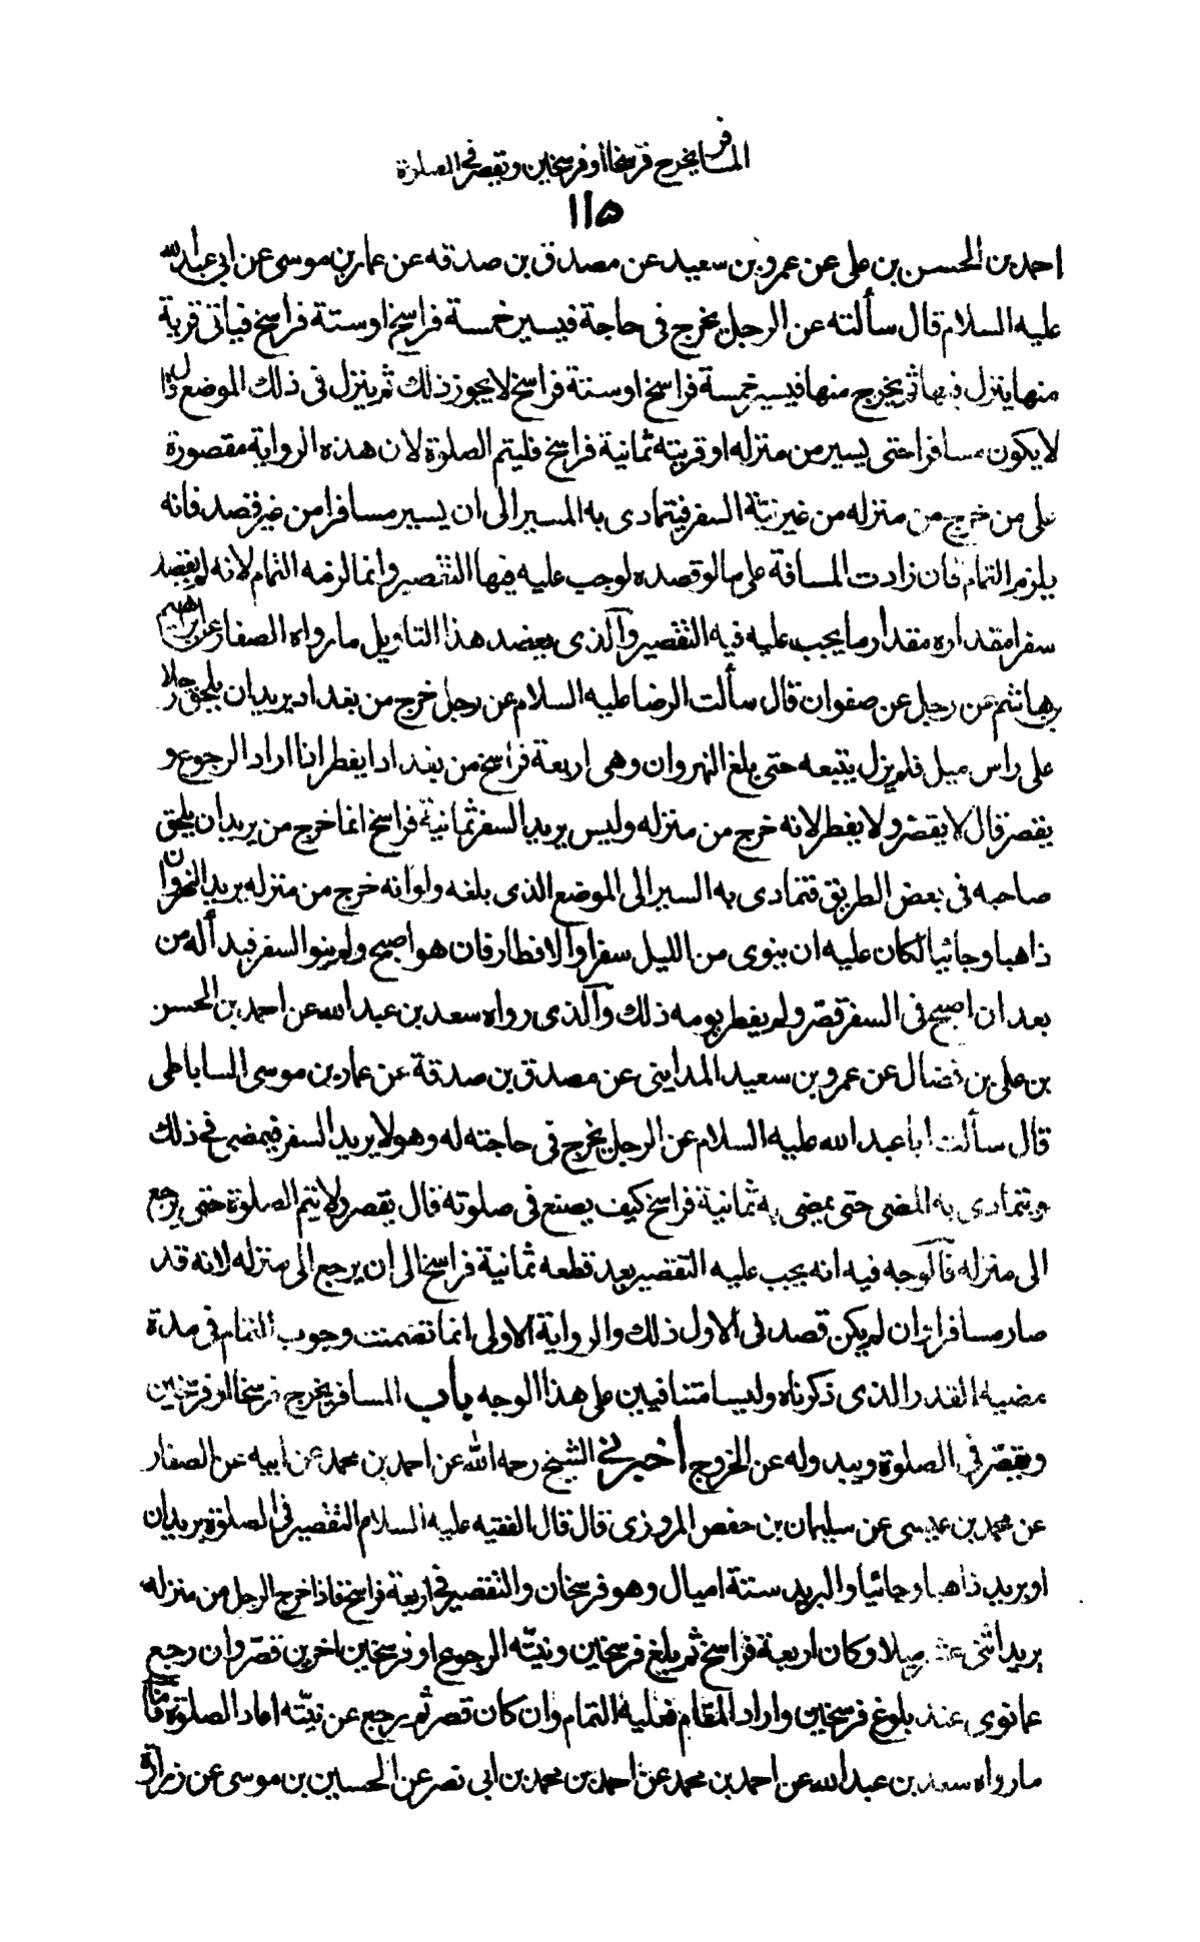 المسافر يخرج فرسخا او فرسخين ويقصر في الصلوة
١١٥
احمد بن الحسن بن على عن عمرو بن سعيد عن مصدق بن صدقه عن عمار بن موسى عن ابي عبد الله
عليه السلام قال سألته عن الرجل يخرج فى حاجة فيسير خمسة فراسخ او ستة فراسخ فياتى قرية
منها ينزل فيها ثم يخرج منها فيسير خمسة فراسخ او ستة فراسخ لا يجوز ذلك ثم ينزل فى ذلك الموضع قال
لا يكون مسافرا حتى يسير من منزله او قريته ثمانية فراسخ فليتم الصلوة لان هذه الرواية مقصورة
على من خرج من منزله من غير نية السفر فيتمادى به المسير الى ان يسير مسافرا من غير قصد فانه
يلزمه التمام فان زادت المسافة على ما لو قصده لوجب عليه فيها التقصير وانما لزمه التمام لانه لم يقصد
سفرا مقداره مقدار ما يجب عليه فيه التقصير والذى يعضد هذا التاويل ما رواه الصفار عن ابراهيم
بن هاشم عن رجل عن صفوان قال سألت الرضا عليه السلام عن رجل خرج من بغداد يريد ان يلحق رجلا
على راس ميل فلم يزل يتبعه حتى بلغ النهروان وهى اربعة فراسخ من بغداد ايفطر اذا اراد الرجوع و
يقصر قال لا يقصر ولا يفطر لانه خرج من منزله وليس يريد السفر ثمانية فراسخ انما خرج من يريد ان يلحق
صاحبه فى بعض الطريق فتمادى به السير الى الموضع الذى بلغه ولو انه خرج من منزله يريد النهروان
ذاهبا وجائيا لكان عليه ان ينوى من الليل سفرا والافطار فان هو اصبح ولم ينو السفر فبدأ له من
بعد ان اصبح فى السفر قصر ولم يفطر يومه ذلك والذى رواه سعد بن عبد الله عن احمد بن الحسن
بن على بن فضال عن عمرو بن سعيد المداينى عن مصدق بن صدقة عن عمار بن موسى الساباطى
قال سألت ابا عبد الله عليه السلام عن الرجل يخرج فى حاجته له وهو لا يريد السفر فيمضى في ذلك
ويتمادى به المضى حتى يمضى به ثمانية فراسخ كيف يصنع فى صلوته قال يقصر ولا يتم الصلوة حتى يرجع
الى منزله فالوجه فيه انه يجب عليه التقصير بعد قطعه ثمانية فراسخ الى ان يرجع الى منزله لانه قد
صار مسافرا وان لم يكن قصد فى الاول ذلك والرواية الاولى انما تضمنت وجوب التمام فى مدة
مضيه القدر الذى ذكرناه وليسا متنافيين على هذا الوجه باب المسافر يخرج فرسخا او فرسخين
ويقصر في الصلوة ويبدو له عن الخروج أخبرني الشيخ رحمه الله عن احمد بن محمد عن ابيه عن الصفار
عن محمد بن عيسى عن سليمان بن حفص المروزى قال قال الفقيه عليه السلام التقصير في الصلوة بريدان
او بريد ذاهبا وجائيا والبريد ستة اميال وهو فرسخان والتقصير في اربعة فراسخ فاذا خرج الرجل من منزله
يريد اثنى عشر ميلا وكان اربعة فراسخ ثم بلغ فرسخين ونيته الرجوع او فرسخين اخرين قصر وان رجع
عما نوى عند بلوغ فرسخين واراد المقام فعليه التمام وان كان قصر ثم يرجع عن نيته اعاد الصلوة فأما
ما رواه سعد بن عبد الله عن احمد بن محمد عن احمد بن محمد بن ابى نصر عن الحسين بن موسى عن زرارة